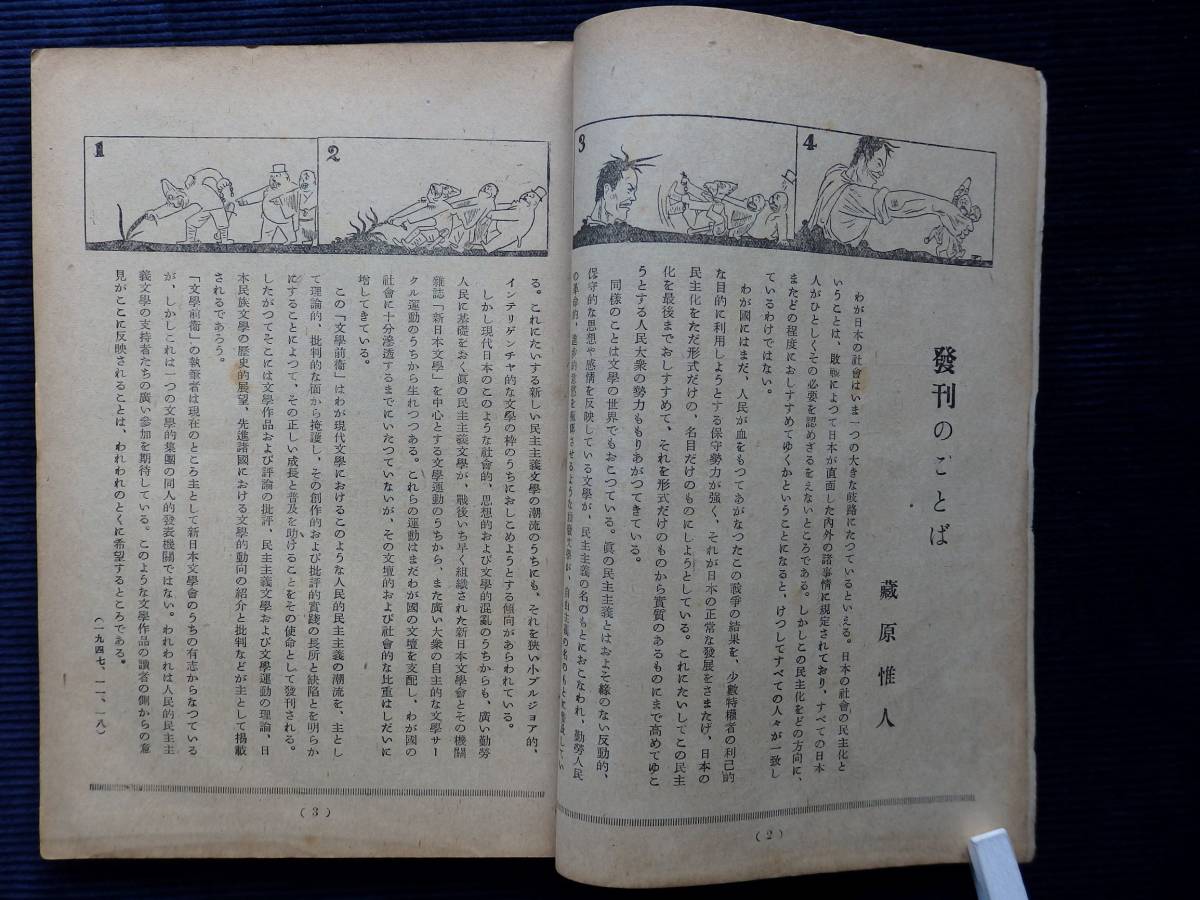 發刊のことば
藏原惟人
わが日本の社會はいま一つの大きな岐路にたつているといえる。日本の社會の民主化と
いうことは、敗戰によつて日本が直面した内外の諸事情に規定されており、すべての日本
人がひとしくその必要を認めざるをえないところである。しかしこの民主化をどの方向に、
またどの程度におしすすめてゆくかということになると、けつしてすべての人々が一致し
ているわけではない。
わが國にはまだ、人民が血をもつてあがなつたこの戰爭の結果を、少數特權者の利己的
な目的に利用しようとする保守勢力が強く、それが日本の正常な發展をさまたげ、日本の
民主化をただ形式だけの、名目だけのものにしようとしている。これにたいしてこの民主
化を最後までおしすすめて、それを形式だけのものから實質のあるものにまで高めてゆこ
うとする人民大衆の勢力ももりあがつてきている。
同樣のことは文學の世界でもおこつている。眞の民主主義とはおよそ緣のない反動的、
保守的な思想や感情を反映している文學が、民主主義の名のもとにおこなわれ、勤勞人民
る。これにたいする新しい民主主義文學の潮流のうちにも、それを狹い小ブルジョア的、
インテリゲンチャ的な文學の枠のうちにおしこめようとする傾向があらわれている。
しかし現代日本のこのような社會的、思想的および文學的混亂のうちからも、廣い勤勞
人民に基礎をおく眞の民主主義文學が、戰後いち早く組織された新日本文學會とその機關
雜誌「新日本文學」を中心とする文學運動のうちから、また廣い大衆の自主的な文學サー
クル運動のうちから生れつつある。これらの運動はまだわが國の文壇を支配し、わが國の
社會に十分滲透するまでにいたつていないが、その文壇的および社會的な比重はしだいに
增してきている。
この「文學前衞」はわが現代文學におけるこのような人民的民主主義の潮流を、主とし
て理論的、批判的な面から掩護し、その創作的および批評的實踐の長所と缺陷とを明らか
にすることによつて、その正しい成長と普及を助けることをその使命として發刊される。
したがつてそこには文學作品および評論の批評、民主主義文學および文學運動の理論、日
本民族文學の歷史的展望、先進諸國における文學的動向の紹介と批判などが主として揭載
されるであろう。
「文學前衞」の執筆者は現在のところ主として新日本文學會のうちの有志からなつている
が、しかしこれは一つの文學的集團の同人的發表機關ではない。われわれは人民的民主主
義文學の支持者たちの廣い參加を期待している。このような文學作品の讀者の側からの意
見がここに反映されることは、われわれのとくに希望するところである。
（一九四七、一一、一八）
1
2
3
4
( 2 )
( 3 )